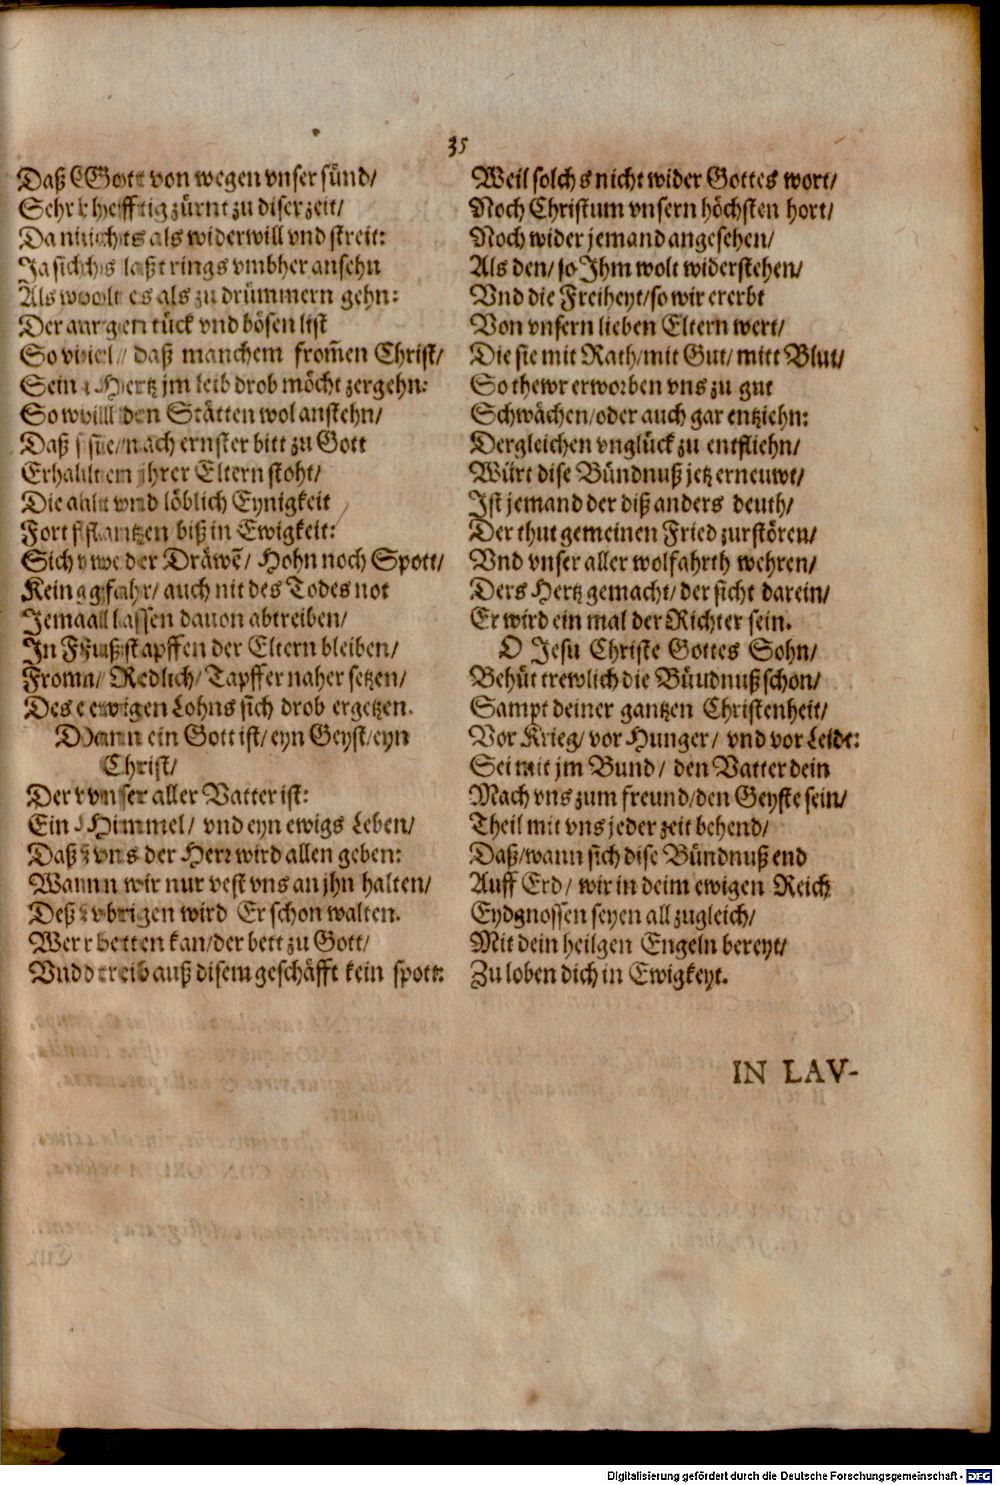 35
Daß Gott von wegen vnser sünd/
Sehr hefftig zürnt zu diser zeit/
Da nichts als widerwill vnd streit:
Ja sichs laßt rings vmbher ansehn
Als wolt es als zu drümmern gehn:
Der argen tück vnd bösen list
So viel/ daß manchem from̃en Christ/
Sein Hertz jm leib drob möcht zergehn:
So will den Stätten wol anstehn/
Daß sie/ nach ernster bitt zu Gott
Erhalten jhrer Eltern stoht/
Die alt vnd löblich Eynigkeit
Fort pflantzen biß in Ewigkeit:
Sich weder Dräwẽ/ Hohn noch Spott/
Kein gfahr/ auch nit des Todes not
Jemal lassen dauon abtreiben/
In Fußstapffen der Eltern bleiben/
From/ Redlich/ Tapffer naher setzen/
Des ewigen Lohns sich drob ergetzen.
Dann ein Gott ist/ eyn Geyst/ eyn
Christ/
Der vnser aller Vatter ist:
Ein Himmel/ vnd eyn ewigs Leben/
Daß vns der Herr wird allen geben:
Wann wir nur vest vns an jhn halten/
Deß vbrigen wird Er schon walten.
Wer betten kan/ der bett zu Gott/
Vnd treib auß disem geschäfft kein spott:
Weil solchs nicht wider Gottes wort/
Noch Christum vnsern höchsten hort/
Noch wider jemand angesehen/
Als den/ so Ihm wolt widerstehen/
Vnd die Freiheyt/ so wir ererbt
Von vnsern lieben Eltern wert/
Die sie mit Rath/ mit Gut/ mitt Blut/
So thewr erworben vns zu gut
Schwächen/ oder auch gar entziehn:
Dergleichen vnglück zu entfliehn/
Würt dise Bündnuß jetz ernewt/
Ist jemand der diß anders deuth/
Der thut gemeinen Fried zurstören/
Vnd vnser aller wolfahrth wehren/
Ders Hertz gemacht/ der sicht darein/
Er wird ein mal der Richter sein.
O Jesu Christe Gottes Sohn/
Behüt trewlich die Bündnuß schon/
Sampt deiner gantzen Christenheit/
Vor Krieg/ vor Hunger/ vnd vor Leidt:
Sei mit jm Bund/ den Vatter dein
Mach vns zum freund/ den Geyste sein/
Theil mit vns jeder zeit behend/
Daß/ wann sich dise Bündnuß end
Auff Erd/ wir in deim ewigen Reich
Eydgnossen seyen all zugleich/
Mit dein heilgen Engeln bereyt/
Zu loben dich in Ewigkeyt.
IN LAV-
Digitalisierung gefördert durch die Deutsche Forschungsgemeinschaft - DFG